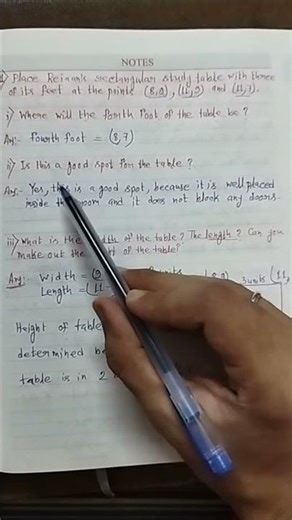 NOTES
Place Reiaan's rectangular study table with three
of its feet at the points (8,9), (11,9) and (11,7).
i) Where will the fourth foot of the table be?
Ans:- Fourth foot = (8,7)
ii) Is this a good spot for the table?
Ans:- Yes, this is a good spot, because it is well placed
inside the room and it does not block any doors.
iii) What is the width of the table? The length? Can you
make out the of the table?
Ans:- Width = (9 units (8,9) 3 units (11,
Length = (11-
Height of table
determined be
table is in 2